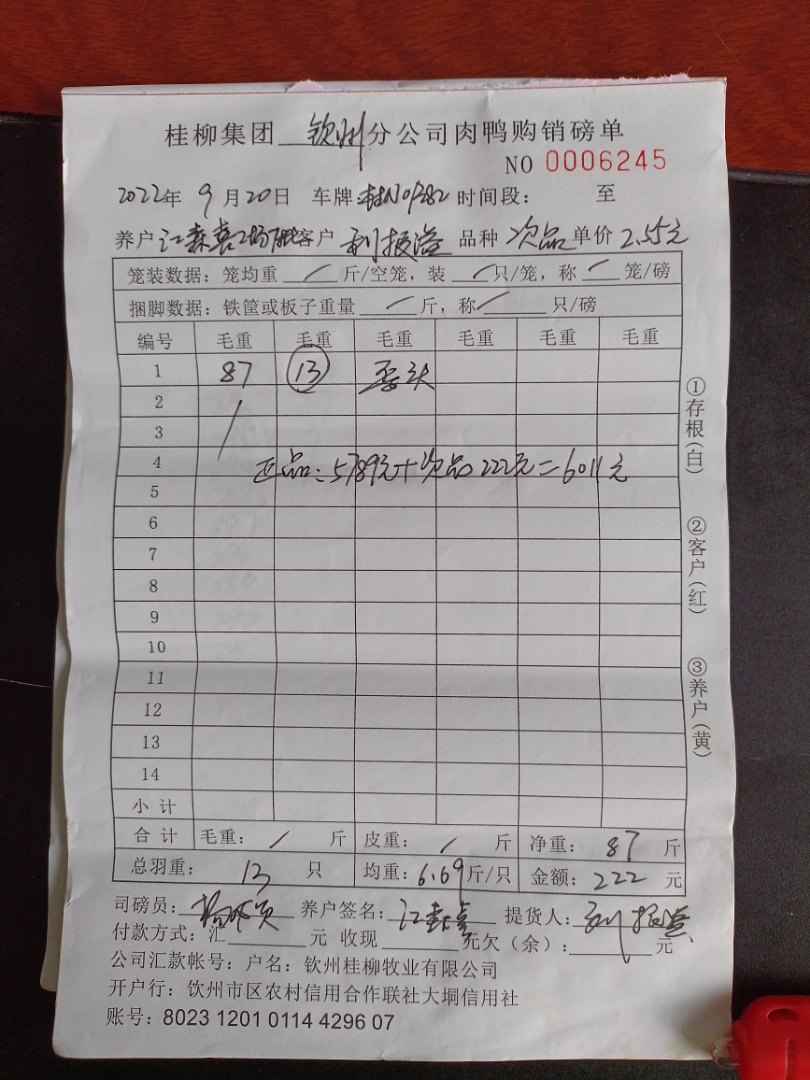 桂柳集团 钦州 分公司肉鸭购销磅单
NO 0006245
2022年 9 月 20 日 车牌 桂N01382 时间段： 至
养户 江森喜 客户 利振溢 品种 次品 单价 2.55元
笼装数据：笼均重 / 斤/空笼，装 / 只/笼，称 / 笼/磅
捆脚数据：铁筐或板子重量 / 斤，称 / 只/磅
编号 毛重 毛重 毛重 毛重 毛重 毛重
1 87 13 歪头
2
3
4 正品：5789元+次品222元=6011元
5
6
7
8
9
10
11
12
13
14
小 计
合 计 毛重： / 斤 皮重： / 斤 净重： 87 斤
总羽重： 13 只 均重：6.69斤/只 金额：222 元
司磅员： 养户签名：江森喜 提货人：利振溢
付款方式：汇 元 收现 元欠（余）： 元
公司汇款帐号：户名：钦州桂柳牧业有限公司
开户行：钦州市区农村信用合作联社大垌信用社
账号：8023 1201 0114 4296 07
①存根(白)
②客户(红)
③养户(黄)